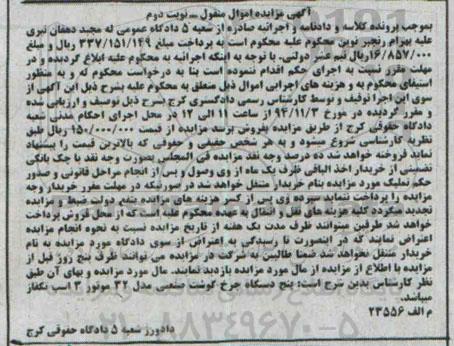 آگهی مزایده اموال منقول ــ نوبت دوم
بموجب پرونده کلاسه و دادنامه و اجرائیه صادره از شعبه 5 دادگاه عمومی له مجید دهقان نیری
علیه بهرام رنجبر نوین محکوم علیه محکوم است به پرداخت مبلغ 337/151/149 ریال و مبلغ
16/857/000ریال نیم عشر دولتی، با توجه به اینکه اجرائیه به محکوم علیه ابلاغ گردیده و در
مهلت مقرر نسبت به اجرای حکم اقدام ننموده است بنا به درخواست محکوم له و به منظور
استیفای محکوم به و هزینه های اجرایی اموال ذیل متعلق به محکوم علیه بشرح ذیل این آگهی از
سوی این اجرا توقیف و توسط کارشناس رسمی دادگستری کرج بشرح ذیل توصیف و ارزیابی شده
و مقرر گردیده در مورخ 94/11/3 از ساعت 11 الی 12 در محل اجرای احکام مدنی شعبه
دادگاه حقوقی کرج از طریق مزایده بفروش برسد مزایده از قیمت 150/000/000 ریال طبق
نظریه کارشناسی شروع میشود و به هر شخص حقیقی و حقوقی که بالاترین قیمت را پیشنهاد
نماید فروخته خواهد شد ده درصد وجه نقد مزایده فی المجلس بصورت وجه نقد یا چک بانکی
تضمینی از خریدار اخذ الباقی ظرف یک ماه از وی وصول و پس از انجام مراحل قانونی و صدور
حکم تملیک مورد مزایده بنام خریدار منتقل خواهد شد در صورتیکه در مهلت مقرر خریدار وجه
مزایده را پرداخت ننماید سپرده وی پس از کسر هزینه های مزایده بنفع دولت ضبط و مزایده
تجدید میگردد کلیه هزینه های نقل و انتقال به عهده محکوم علیه است که از محل فروش پرداخت
خواهد شد طرفین میتوانند ظرف مدت یک هفته از تاریخ مزایده نسبت به نحوه انجام مزایده
اعتراض نمایند که در اینصورت تا رسیدگی به اعتراض از سوی دادگاه مورد مزایده به نام
خریدار منتقل نخواهد شد ضمنا طالبین به شرکت در مزایده می توانند ظرف پنج روز قبل از
مزایده با اطلاع از مزایده از مال مورد مزایده بازدید نمایند. مال مورد مزایده و بهای آن طبق
نظر کارشناس بدین شرح است: پنج دستگاه چرخ گوشت صنعتی مدل 32 موتور 3 اسب تکفاز
میباشد.
م الف 23556
دادورز شعبه 5 دادگاه حقوقی کرج
021-88349670-5